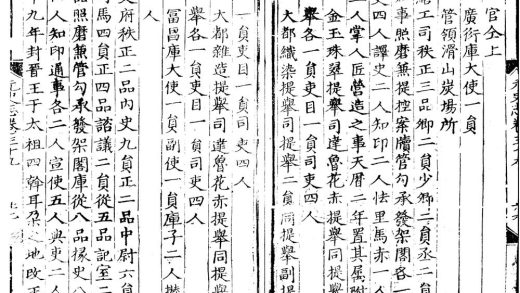 官仝上
廣衍庫大使一員
管領滑山炭場所
工司秩正三品卿二員少卿二員丞二員
事照磨兼提控案牘管勾承發架閣各一
史四人譯史二人知印二人怯里馬赤一人
二人掌人匠營造之事天曆二年置其属附
金玉珠翠提舉司達魯花赤提舉同提舉
舉各一員吏目一員司吏四人
大都織染提舉司提舉二員同提舉副提
一員吏目一員司吏四人
大都雜造提舉司達魯花赤提舉同提舉
舉各一員吏目一員司吏四人
富昌庫大使一員副使一員庫子二人攢
人
府秩正二品內史九員正二品中尉六員
馬四員正四品諮議二員從五品記室二
照磨兼管勾承發架閣庫從八品掾史八
人知印通事各二人宣使五人典吏二人
十九年封晉王于太祖四斡耳朶之地改王